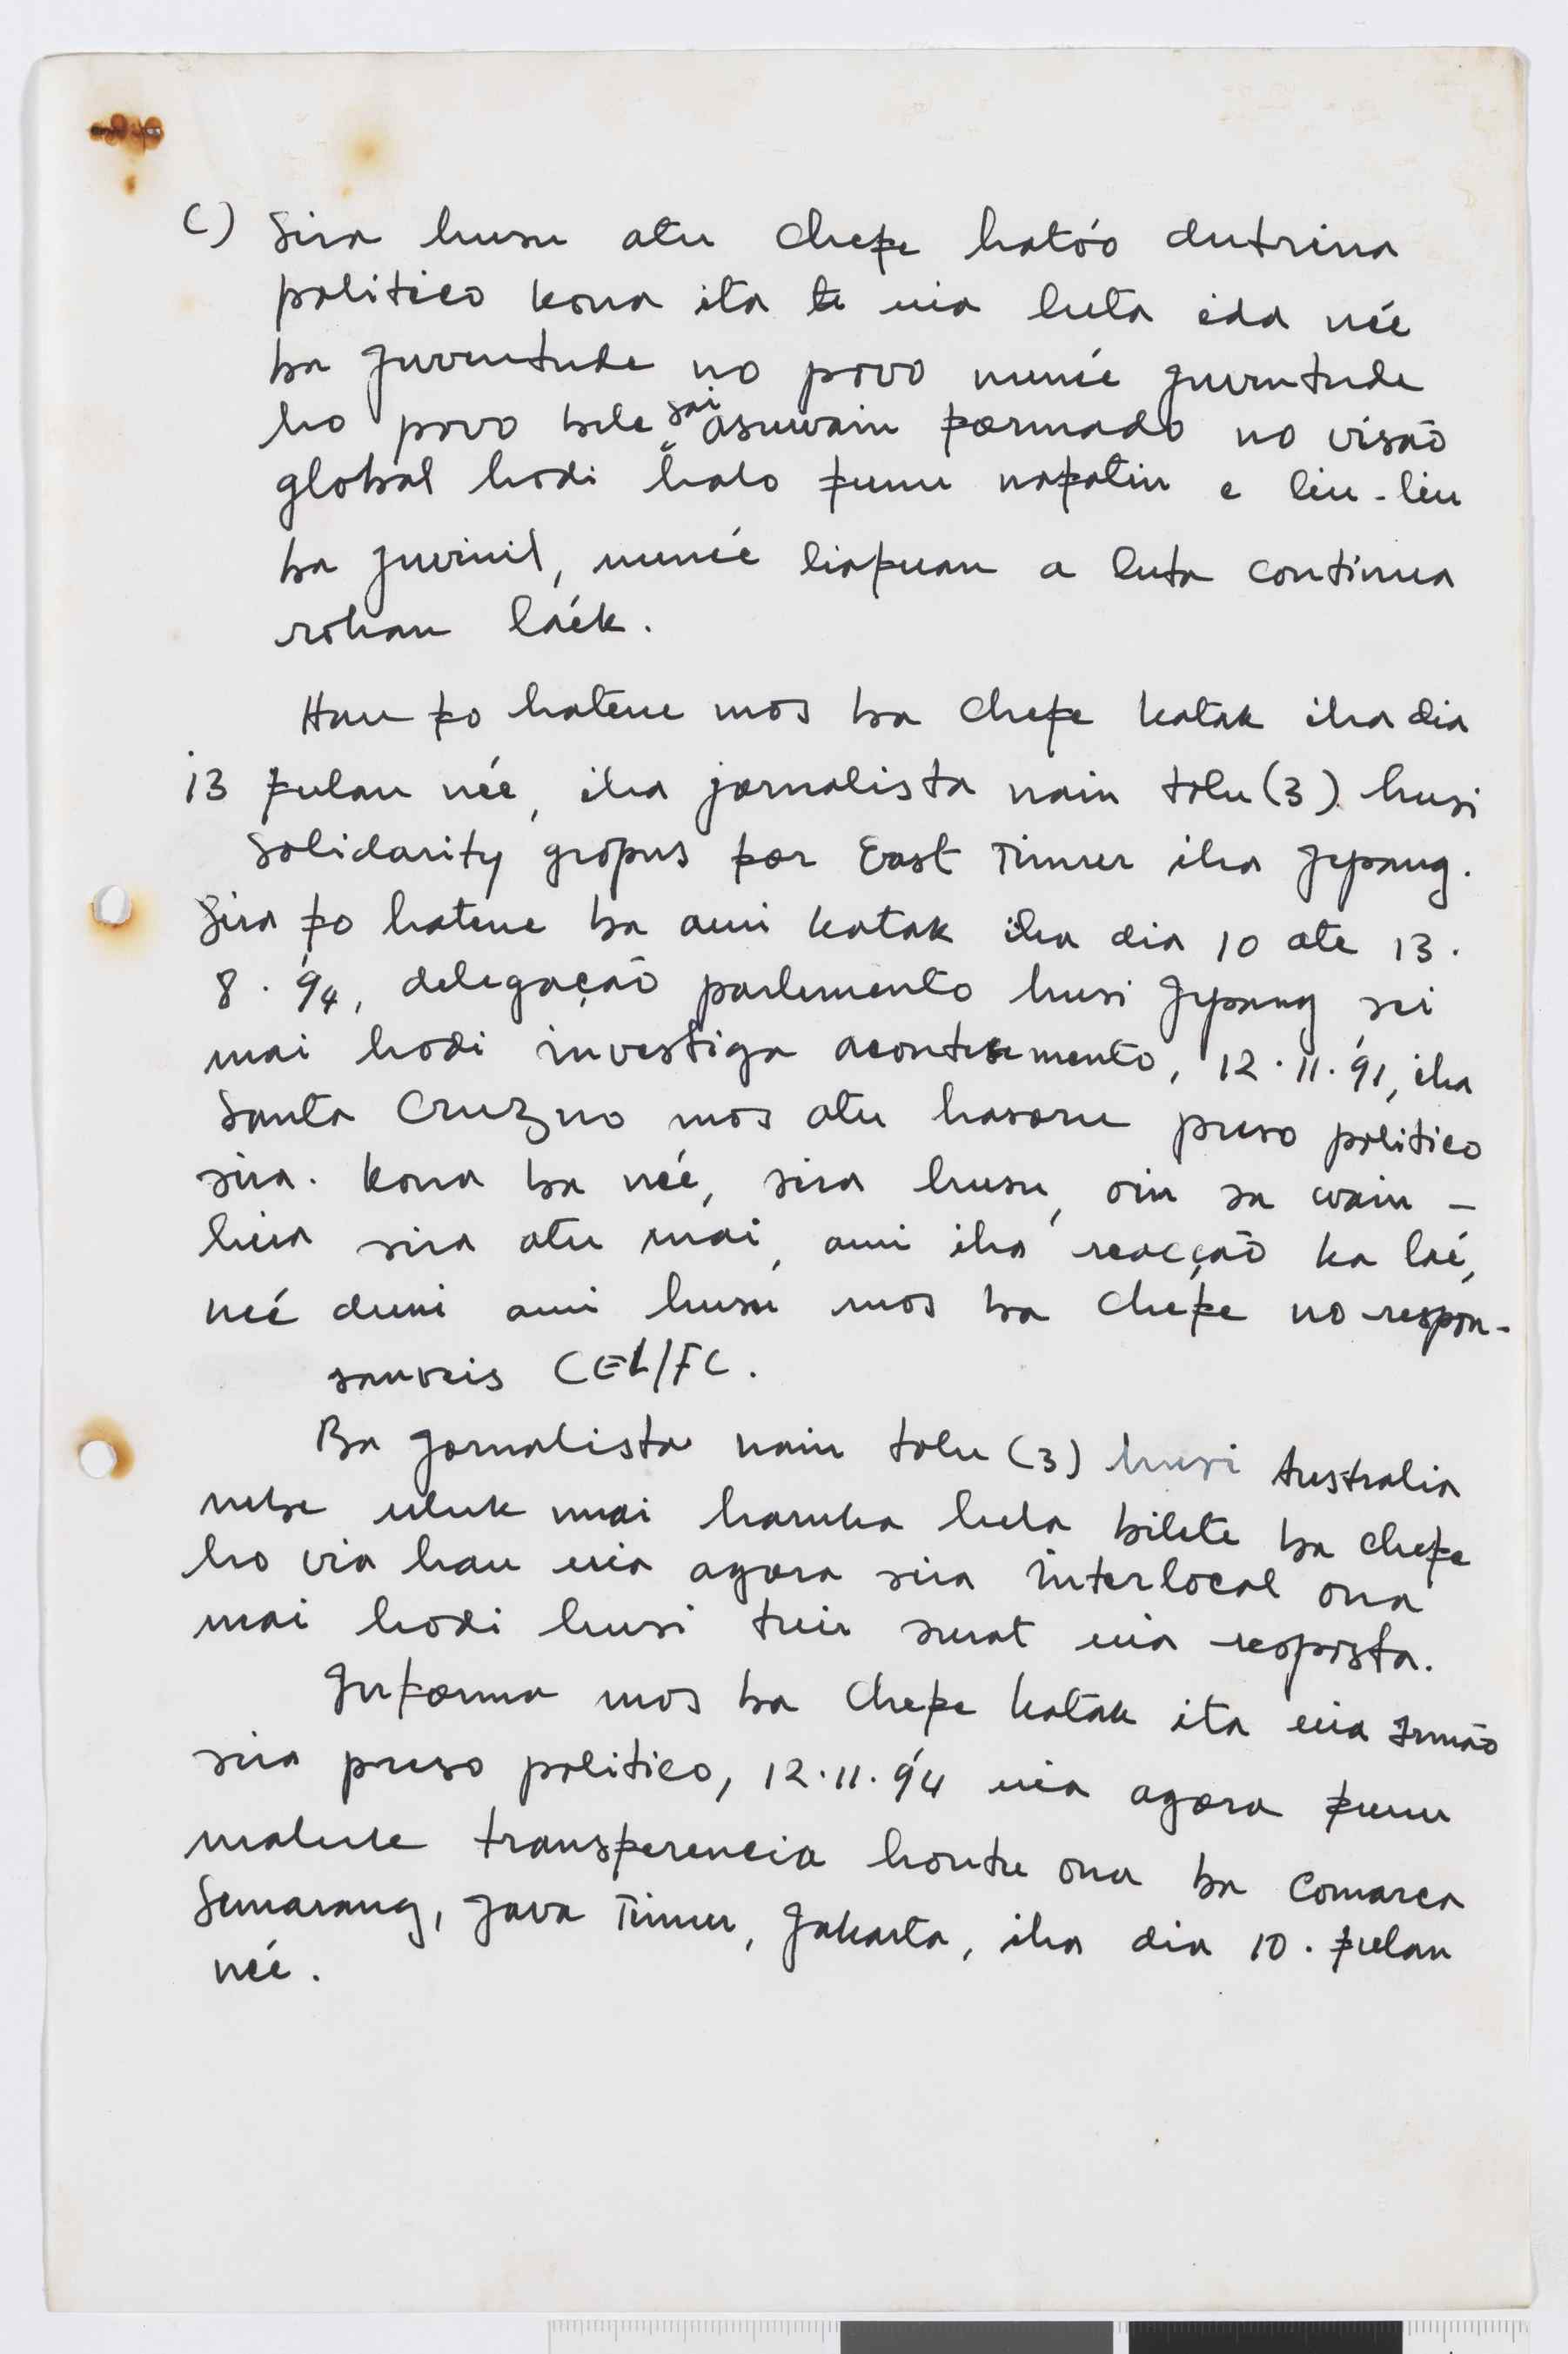 C) Sira husu atu chefe hatóo dutrina
politico kona ita nia luta ida néé
ba juventude no povo nunéé juventude
ho povo bele sai asuwain formado no visão
global hodi halo funu nafatin e liu-liu
ba juvinil, nunéé liafuan a luta continua
rohan láék.
Hau fo hatene mos ba chefe katak iha dia
13 fulan néé, iha jornalista nain tolu (3) husi
solidarity gropus for East Timur iha Jepang.
Sira fo hatene ba ami katak iha dia 10 ate 13.
8.94, delegação parlemento husi Jepang sei
mai hodi investiga acontesemento, 12.11.91, iha
Santa Cruz no mos atu hasoru preso politico
sira. Kona ba néé, sira husu, oin sa wain-
hira sira atu mai, ami iha reacção ka láé,
néé duni ami husu mos ba chefe no respon-
sauveis CEL/FC.
Ba jornalista nain tolu (3) husi Australia
nebe uluk mai haruka hela bilete ba chefe
ho via hau nia agora sira interlocal ona
mai hodi husi tuir surat nia resposta.
Informa mos ba chefe katak ita nia Irmão
sira preso politico, 12.11.94 nia agora funu
maluk transferencia hontu ona ba comarca
Semarang, Java Timur, Jakarta, iha dia 10. fulan
néé.